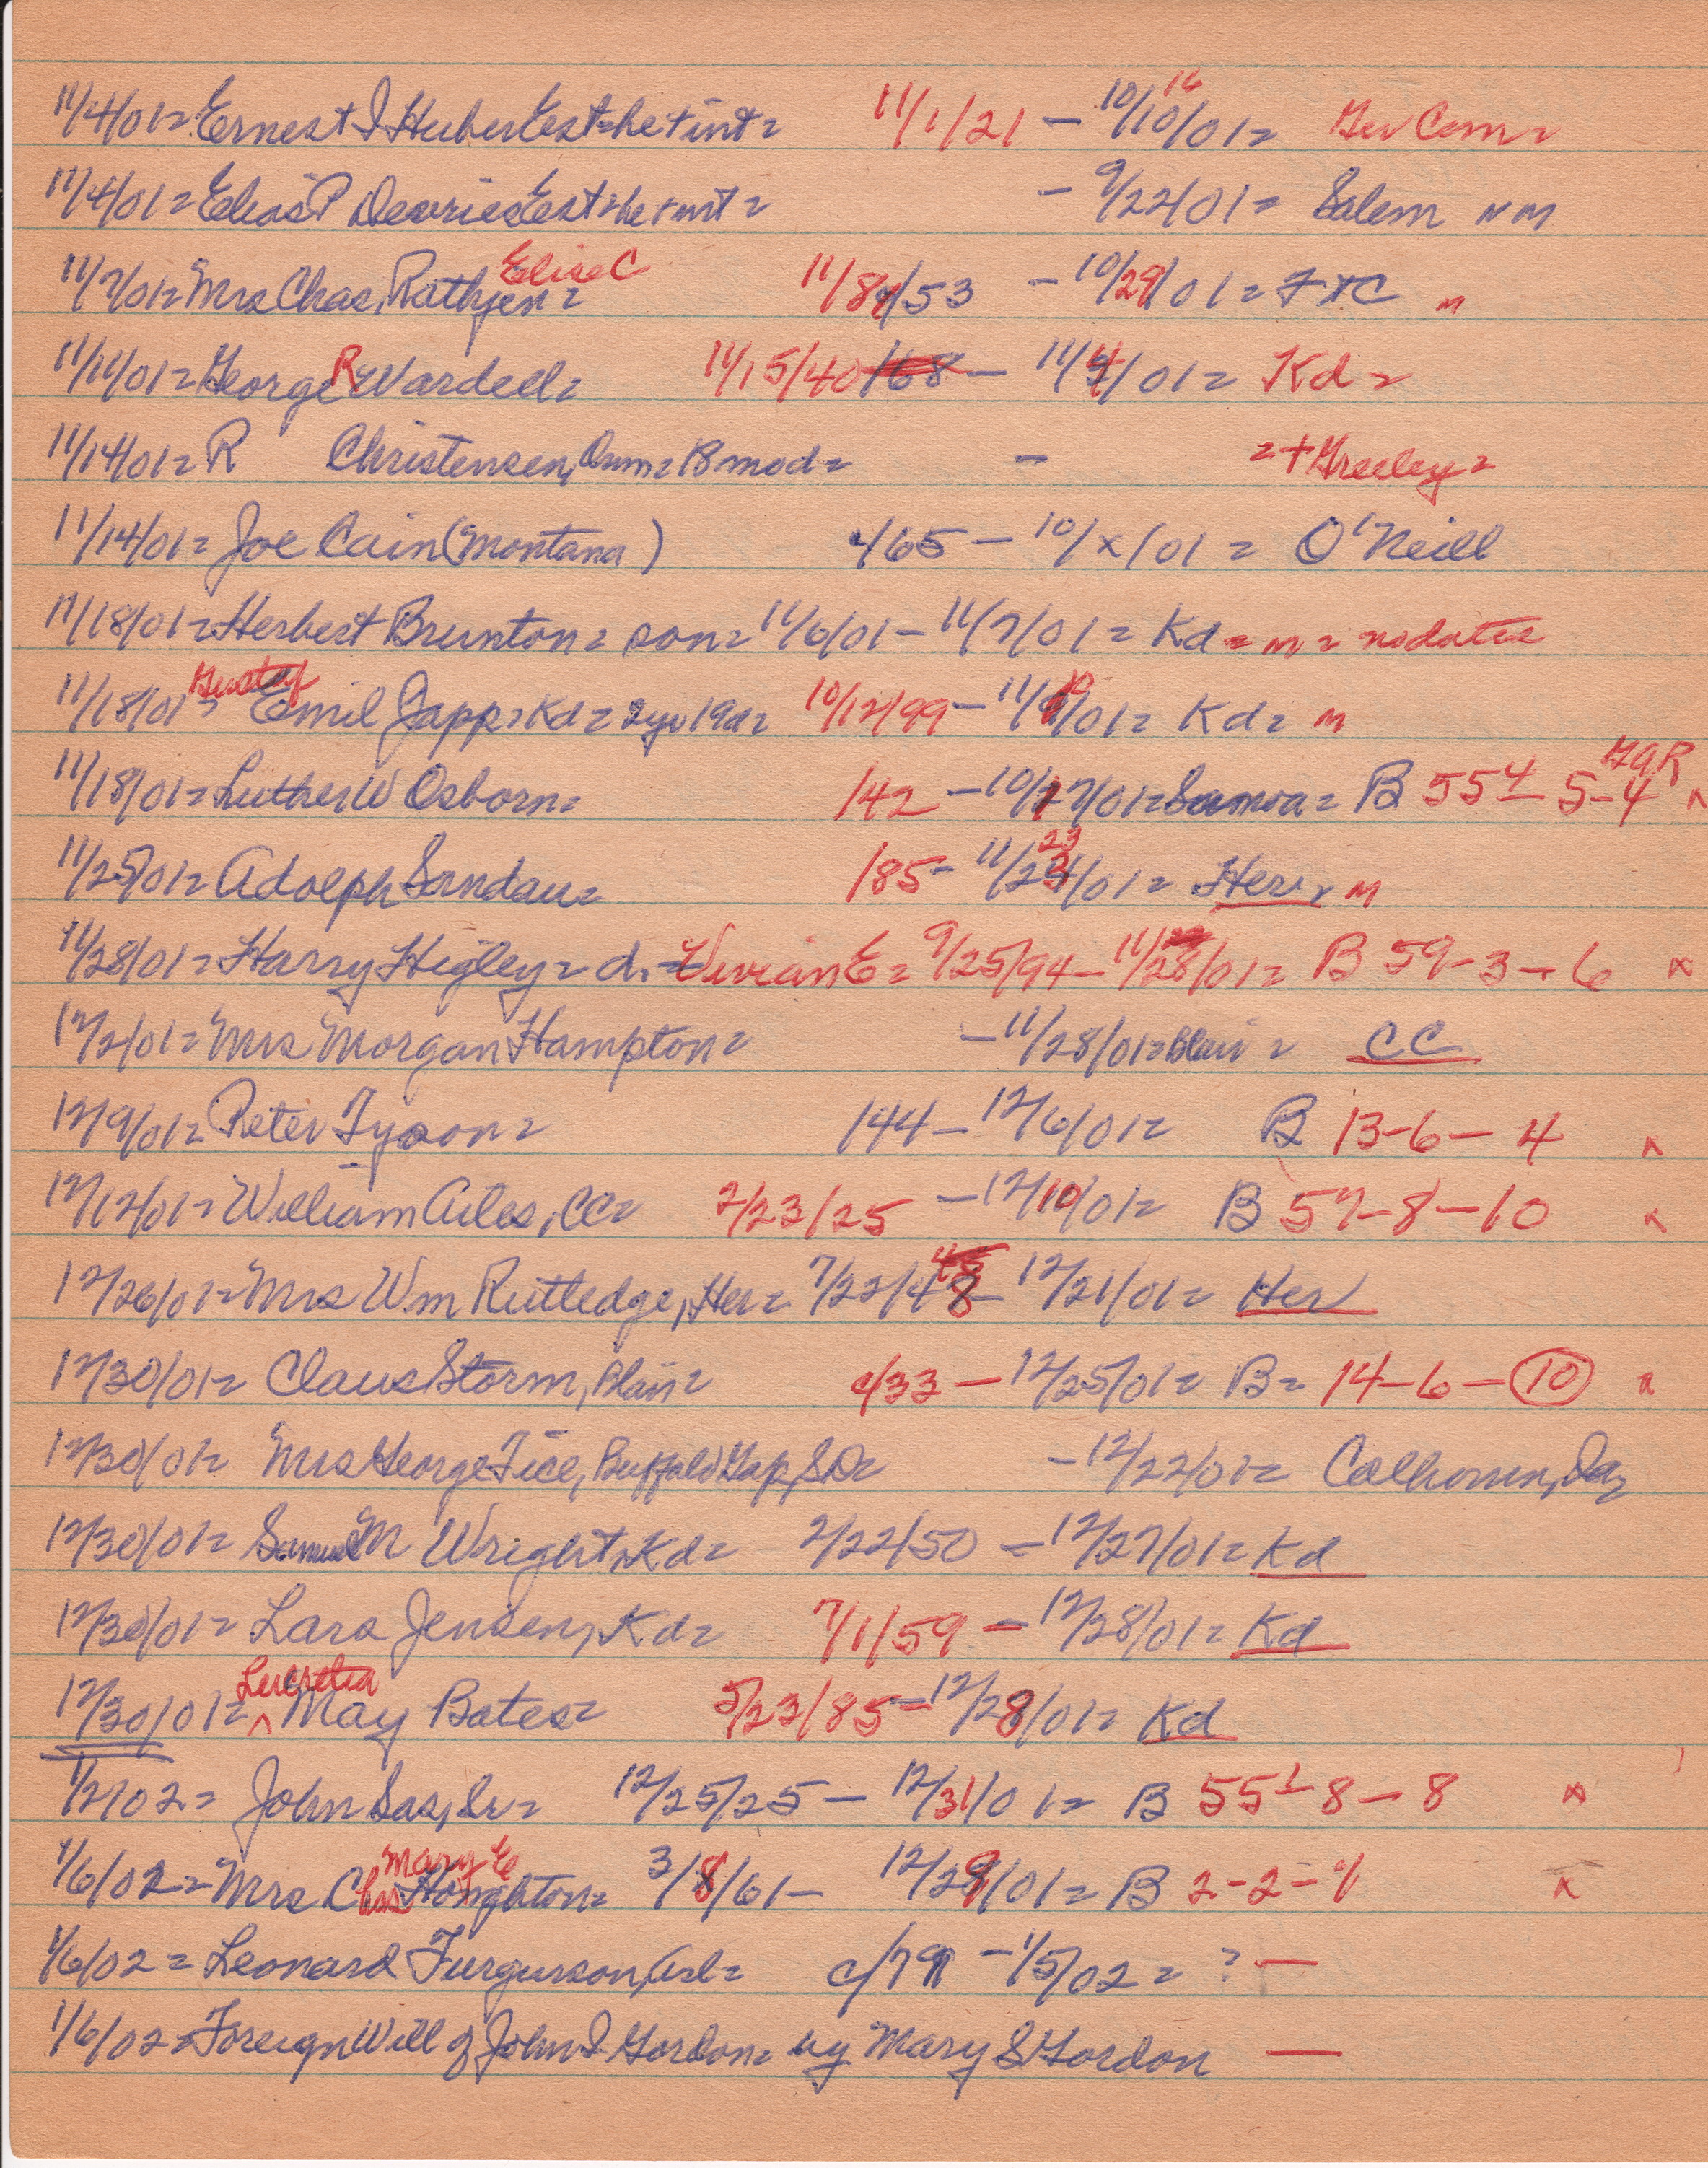 11/4/01= Ernest I Huber Est=he+int= 11/1/21 - 10/10/01= 16 Ger Cem=
11/4/01= Elias P Devries Est=he+int= - 9/22/01= Salem NM
11/7/01= Mrs Chas. Rathjen= Elise C 11/8/53 - 10/29/01= FtC m
11/11/01= George R Wardell= 11/15/40 /68 - 11/4/01= Kd=
11/14/01= R Christensen, Oum=B mod= - =+Greeley=
11/14/01= Joe Cain (Montana) c/65 - 10/x/01= O'Neill
11/18/01= Herbert Brunton= son= 11/6/01 - 11/7/01= Kd= m= nodates
11/18/01= Gustaf Emil Japp=Kd= 2yr 19d= 10/12/99 - 11/10/01= Kd= m
11/18/01= Luther W Osborn= /42 - 10/17/01=Samoa= B 55 4 - 5-4 GAR ^
11/25/01= Adolph Sandau= /85 - 11/23/01= 23 Her, m
11/28/01= Harry Higley= d.= Vivian E= 9/25/94 - 11/28/01= B 59-3-6 x
12/2/01= Mrs Morgan Hampton= - 11/28/01=Blair= CC
12/9/01= Peter Tyson= 144 - 12/6/01= B 13-6-4 ^
12/12/01= William Ailes, CC= 2/23/25 - 12/10/01= B 57-8-10 x
12/26/01= Mrs Wm Rutledge, Her= 7/22/48 - 12/21/01= Her
12/30/01= Claus Storm, Blair= c/33 - 12/25/01= B= 14-6-10 x
12/30/01= Mrs George Tice, Buffalo Gap, SD= - 12/22/01= Calhoun, Ia,
12/30/01= Samuel M Wright, Kd= 2/22/50 - 12/27/01= Kd
12/30/01= Lars Jensen, Kd= 7/1/59 - 12/28/01= Kd
12/30/01= Lucretia ^ May Bates= 5/23/85 - 12/28/01= Kd
1/2/02= John Sas, Sr= 12/25/25 - 12/31/01= B 55 1 - 8-8 x
1/6/02= Mrs Chas Mary E Houghton= 3/8/61 - 12/29/01= B 2-2-7 x
1/6/02= Leonard Furguson, Arl= c/79 - 1/5/02= ? -
1/6/02= Foreign Will of John I Gordon= by Mary S Gordon -